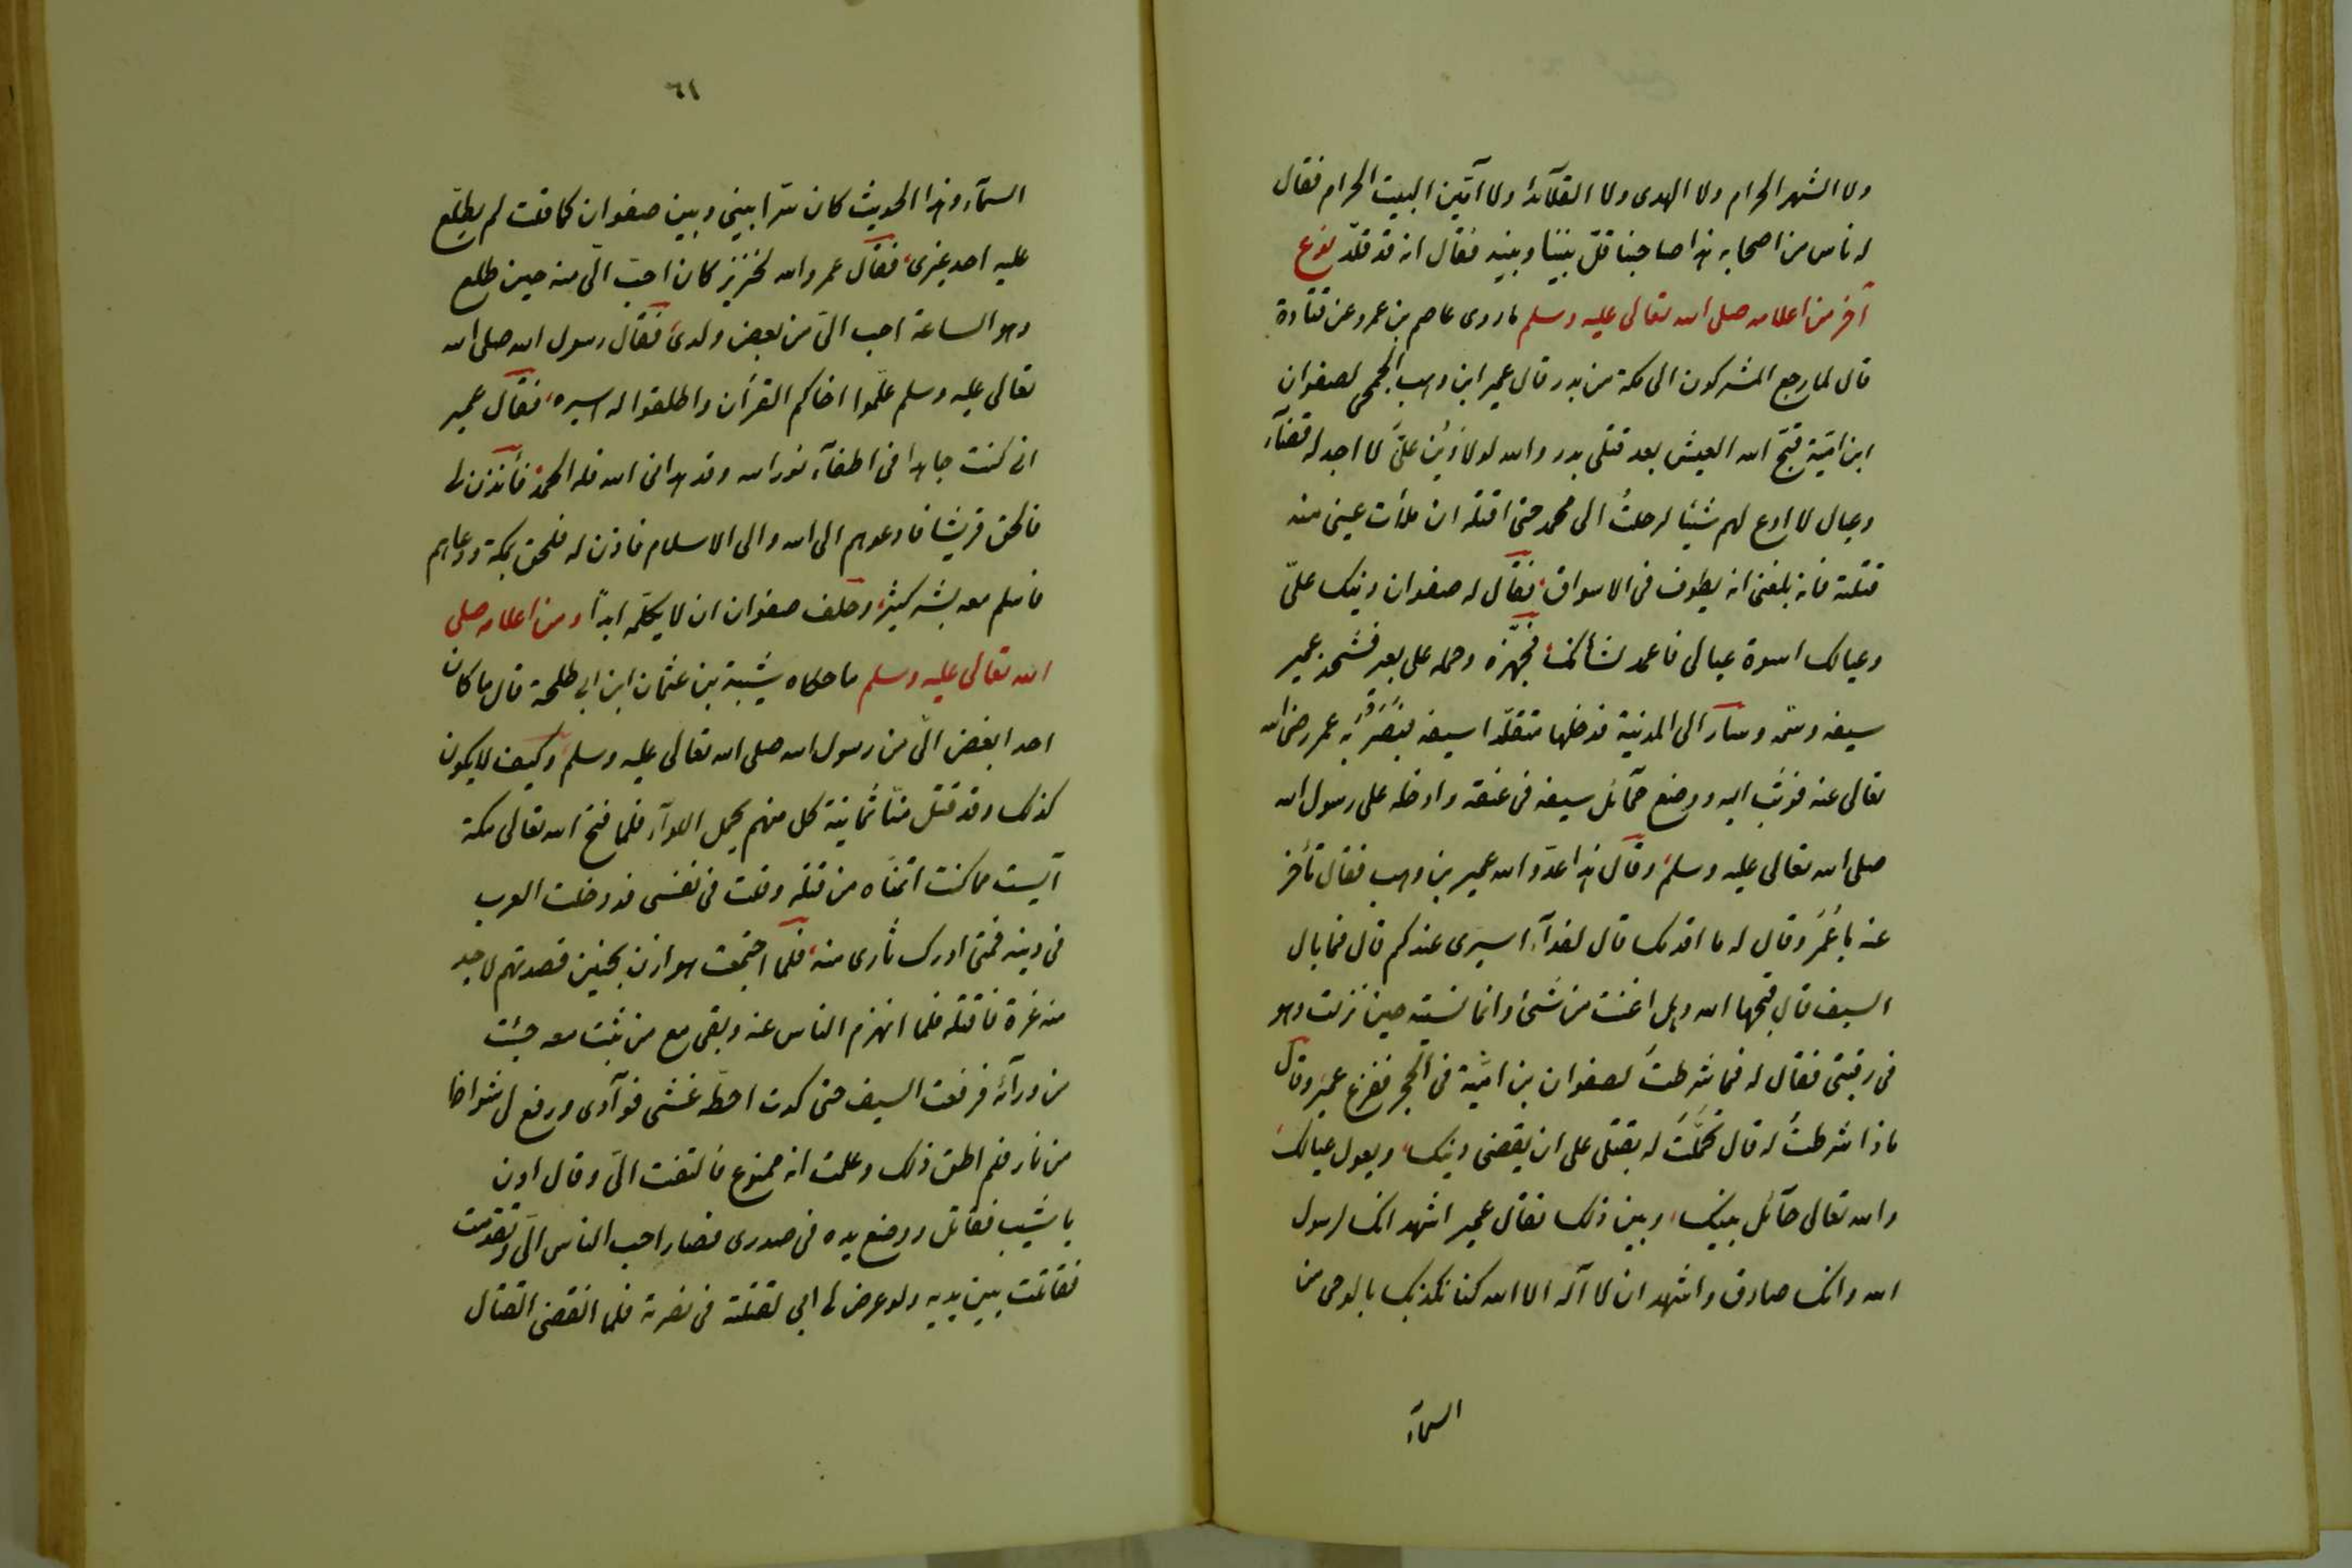 ولا الشهر الحرام ولا الهدى ولا القلآئد ولا آمّين البيت الحرام فقال
له ناس من اصحابه هذا صاحبنا خلّ بيننا وبينه فقال انه قد قلّد نوع
آخر من اعلامه صلى الله تعالى عليه وسلم ما روى عاصم بن عمرو عن قتادة
قال لما رجع المشركون الى مكة من بدر قال عمير ابن وهب الجمحى لصفوان
ابن اميّة قبّح الله العيش بعد قتلى بدر والله لولا دَيْن علىَّ لا اجد له قضآء
وعيال لا ادع لهم شيئا لرحلتُ الى محمد حتى اقتله ان ملأت عينى منه
قتلته فانه بلغنى انه يطوف فى الاسواق، فقال له صفوان دينك علىّ
وعيالك اسوة عيالى فاعمد لشأنك، فجهّزه وحمله على بعير فشحذ عمير
سيفه وسّمه وسار الى المدينة فدخلها متقلّدا سيفه فبَصُرَ به عمر رضى الله
تعالى عنه فوثب اليه ووضع حمآئل سيفه فى عنقه وادخله على رسول الله
صلى الله تعالى عليه وسلم، وقال هذا عدوّ الله عمير بن وهب فقال تأخر
عنه يا عُمَرُ وقال له ما اقدمك قال لفدآء اسيرى عندكم قال فما بال
السيف قال قبحها الله وهل اغنت من شىء وانما نسيته حين نزلت وهو
فى رقبتى فقال له فما شرطتَ لصفوان بن اميّة فى الحجر ففزع عمير وقال
ماذا شرطتُ له قال تحمّلتَ له بقتلى على ان يقضى دينك، ويعول عيالك،
والله تعالى حآئل بينك، وبين ذلك فقال عمير اشهد انك لرسول
الله وانك صادق واشهد ان لا آله الا الله كنا نكذبك بالوحى من
السمآء
٦١
السمآء وهذا الحديث كان سّرا بينى وبين صفوان كما قلت لم يطّلع
عليه احد غيرى، فقال عمر والله لخنزير كان احبّ الىّ منه حين طلع
وهو الساعة احب الىّ من بعض ولدى، فقال رسول الله صلى الله
تعالى عليه وسلم علّموا اخاكم القرأن واطلقوا له اسيره، فقال عمير
انى كنت جاهدا فى اطفآء نور الله وقد هدانى الله فله الحمد، فأئذن لى
فالحق قريشا فادعوهم الى الله والى الاسلام فاذن له فلحق بمكة ودعاهم
فاسلم معه بشر كثير، وحلف صفوان ان لا يكلّمه ابدًا ومن اعلامه صلى
الله تعالى عليه وسلم ما حكاه شيبة بن عثمان ابن ابى طلحة قال ما كان
احد ابغض الىّ من رسول الله صلى الله تعالى عليه وسلم، وكيف لا يكون
كذلك وقد قتل منّا ثمانية كل منهم يحمل اللوآء فلما فتح الله تعالى مكة
آيست مما كنت اتمنّاه من قتله وقلت فى نفسى قد دخلت العرب
فى دينه فمتى ادرك ثارى منه، فلما اجتمعت هوازن بحنين قصدتهم لاجد
منه غرة فاقتله فلما انهزم الناس عنه وبقى مع من ثبت معه جئت
من ورآئه فرفعت السيف حتى كدت احطّه غشى فوآدى ورفع لى شواظا
من نار فلم اطق ذلك وعلمت انه ممنوع فالتفت الىّ وقال ادن
يا شيب فقاتل ووضع يده فى صدرى فصار احب الناس الىّ وتقدمت
فقاتلت بين يديه ولو عرض لى ابى لقتلته فى نصرته فلما انقضى القتال